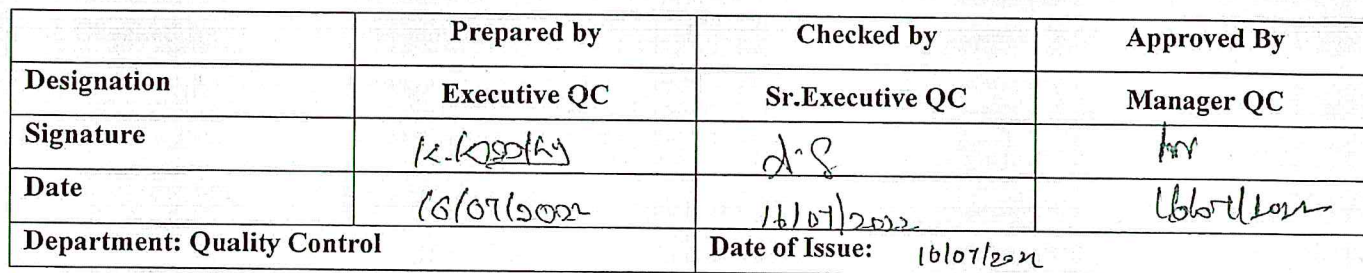 Prepared by Checked by Approved By
Designation Executive QC Sr.Executive QC Manager QC
Signature
Date 16/07/2022 16/07/2022 16/07/2022
Department: Quality Control Date of Issue: 16/07/2022